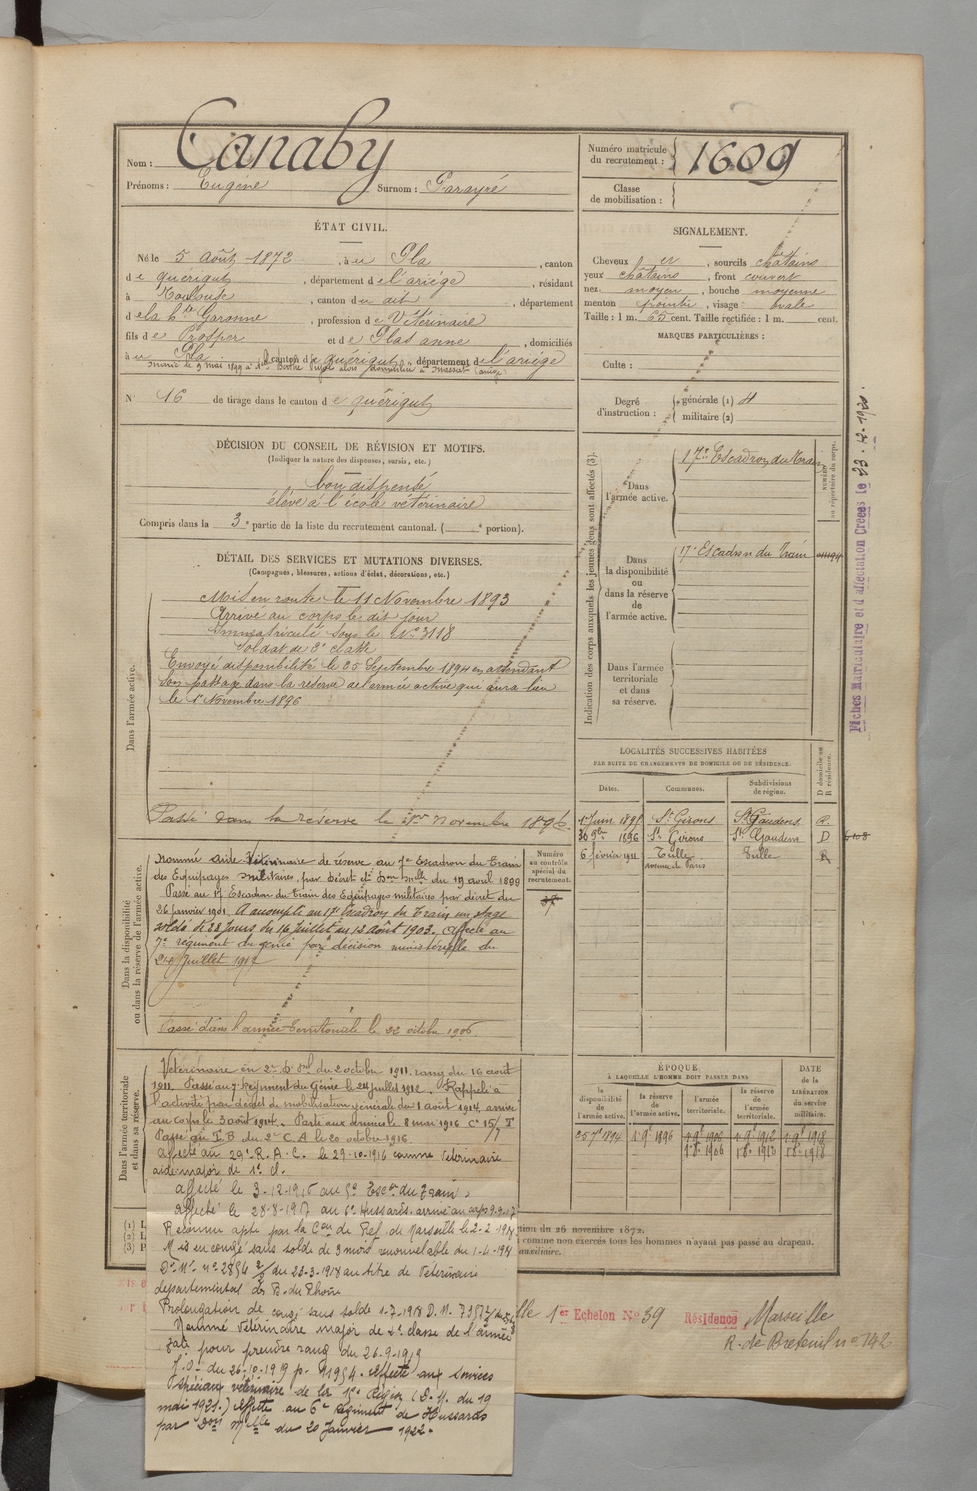 Nom : Canaby
Prénoms : Eugène Surnom : Parayré
Numéro matricule du recrutement : 1609
Classe de mobilisation :
ÉTAT CIVIL.
Né le 5 Août 1872, à u Pla, canton
de quérigut, département de l'ariège, résidant
à Toulouse, canton du dit, département
de la hte Garonne, profession de Vétérinaire
fils de Prosper et de Plas anne, domiciliés
à u Pla canton de quérigut, département de l'ariège
Marié le 9 mai 1899 à Massat (ariège)
N° 16 de tirage dans le canton de quérigut
SIGNALEMENT.
Cheveux et, sourcils châtains
yeux châtains, front couvert
nez moyen, bouche moyenne
menton pointu, visage ovale
Taille : 1 m. 65 cent. Taille rectifiée : 1 m. cent.
MARQUES PARTICULIÈRES :
Culte :
Degré d'instruction : générale (1) 4
militaire (2)
DÉCISION DU CONSEIL DE RÉVISION ET MOTIFS.
(Indiquer la nature des dispenses, sursis, etc.)
bon dispensé
élève à l'école vétérinaire
Compris dans la 3e partie de la liste du recrutement cantonal. ( e portion).
DÉTAIL DES SERVICES ET MUTATIONS DIVERSES.
(Campagnes, blessures, actions d'éclat, décorations, etc.)
Dans l'armée active.
Mis en route le 11 Novembre 1893
Arrivé au corps le dit jour
Immatriculé sous le N° 3118
Soldat de 2e classe
Envoyé disponibilité le 25 Septembre 1894 en attendant
son passage dans la réserve de l'armée active qui aura lieu
le 1er Novembre 1896
Passé dans la réserve le 1er novembre 1896.
Dans la disponibilité ou dans la réserve de l'armée active.
Numéro au contrôle spécial du recrutement.
Nommé aide Vétérinaire de réserve au Escadron du Train
des Equipages militaires, par Décret et Don Mlle du 19 avril 1899
Passé au 17 Escadron du Train des Equipages militaires par décret du
26 janvier 1901 A accompli au 17e Escadron du Train un stage
soldé de 28 jours du 16 juillet au 12 août 1903. Affecté au
7e régiment du génie par décision ministérielle du
24 juillet 1912
Passé dans l'armée territoriale le 22 octobre 1906
Dans l'armée territoriale et dans sa réserve.
Vétérinaire en 2e D. Pal du 2 octobre 1911 rang du 16 août
1911. Passé au 7e Regiment du Génie le 24 juillet 1912. Rappelé à
l'activité par décret de mobilisation générale du 1 août 1914 arrivé
au corps le 3 août 1914. Parti aux armées le 8 mai 1916 Cie 15/7 T
Passé au T.B du 2e C.A le 20 octobre 1916
affecté au 29e R.A.C. le 29-10-1916 comme Vétérinaire
aide major de 1e cl.
affecté le 3-12-1916 au 5e Escon du Train.
affecté le 28-8-1917 au 6e Hussards. arrivé au corps 9-9-17
Reconnu apte par la Con de Ref. de Marseille le 2-2-1918
Mis en congé sans solde de 3 mois renouvelable du 1-4-1918
du 23-3-1918 au titre de Veterinaire
departemental des B. du Rhône
Prolongation de congé sans solde 1-7-1918 D.M.
Nommé Vétérinaire major de 2e classe de l'armée
pour prendre rang du 26-9-1919
J.O. du 26-10-1919 p. 11954. Affecté aux services
spéciaux vétérinaire de la 15e Région (D.M. du 19
mai 1921.) Affecté au 6e Régiment de Hussards
par Don Mlle du 20 Janvier 1922.
Indication des corps auxquels les jeunes gens sont affectés (3).
NUMÉRO au répertoire du corps.
Dans l'armée active. 17e Escadron du Train
Dans la disponibilité ou dans la réserve de l'armée active. 17e Escadron du Train
Dans l'armée territoriale et dans sa réserve.
Fiches Matriculaire et d'affectation Créées le
LOCALITÉS SUCCESSIVES HABITÉES
PAR SUITE DE CHANGEMENTS DE DOMICILE OU DE RÉSIDENCE.
Dates. Communes. Subdivisions de région. D domicile ou R résidence.
1 Juin 1895 St Girons St Gaudens R.
26 9bre 1896 St Girons St Gaudens D
6 février 1911 Tulle Tulle R
avenue de Paris
ÉPOQUE
À LAQUELLE L'HOMME DOIT PASSER DANS
DATE de la LIBÉRATION du service militaire.
la disponibilité de l'armée active. la réserve de l'armée active. l'armée territoriale. la réserve de l'armée territoriale.
25 7e 1894 1 9e 1896 1 9e 1906 1 9e 1912 1 9e 1918
1.8. 1906 1.8. 1912 1.8. 1918
(1) L
(2)
(3) P
du 26 novembre 1872.
comme non exercés tous les hommes n'ayant pas passé au drapeau.
auxiliaire.
1er Echelon N° 39 Résidence Marseille
R. de Breteuil n° 142